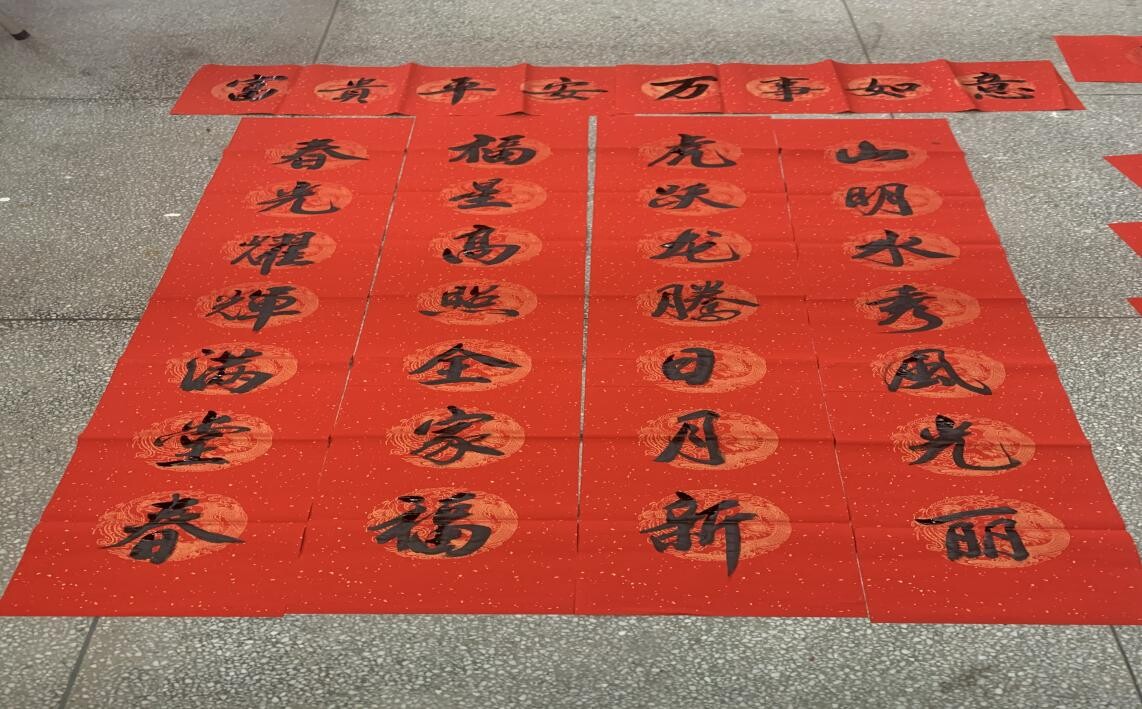 富贵平安 万事如意
春光耀輝满堂春
福星高照全家福
虎跃龙腾日月新
山明水秀風光丽